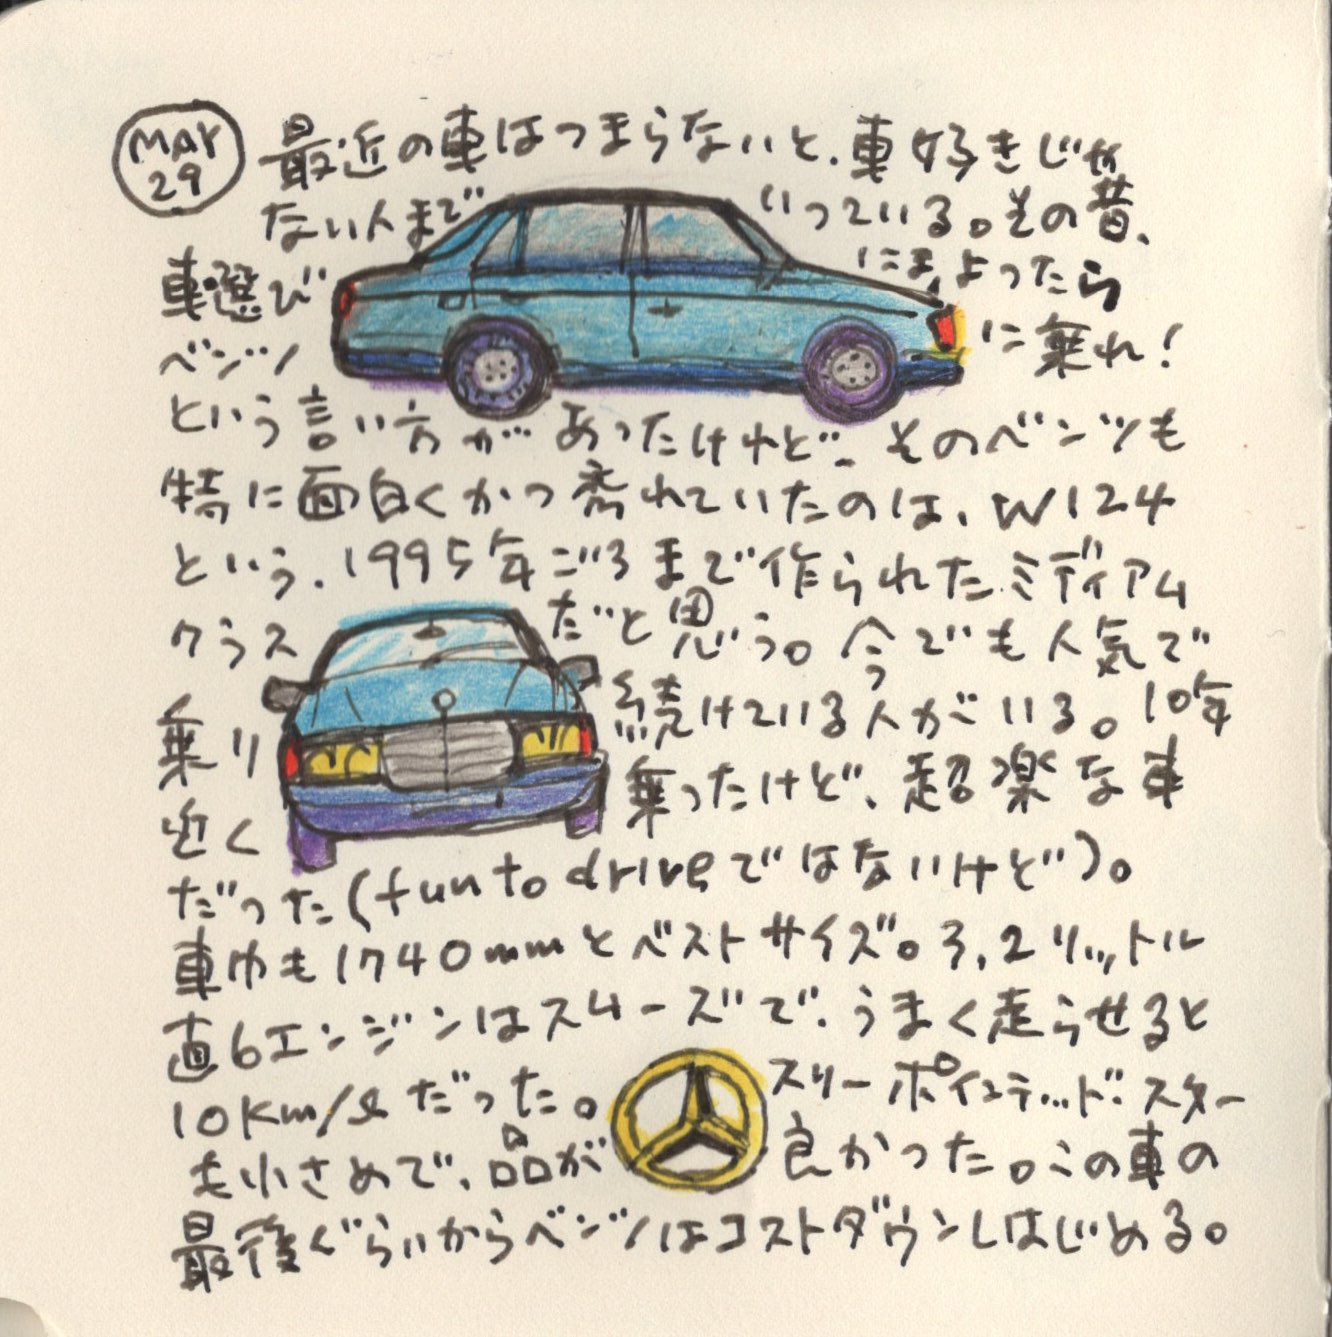 MAY
29
最近の車はつまらないと、車好きじゃ
ない人まで いっている。その昔、
車選び にまよったら
ベンツ に乗れ!
という言い方があったけれど、そのベンツも
特に面白くかつ秀れていたのは、W124
という、1995年ごろまで作られたミディアム
クラス だと思う。今でも人気で
乗り 続けている人がいる。10年
近く 乗ったけど、超楽な車
だった(fun to driveではないけど)。
車巾も1740mmとベストサイズ。3,2リットル
直6エンジンはスムーズで、うまく走らせると
10Km/ℓだった。 スリーポインテッド・スター
も小さめで、品が 良かった。この車の
最後ぐらいからベンツはコストダウンしはじめる。